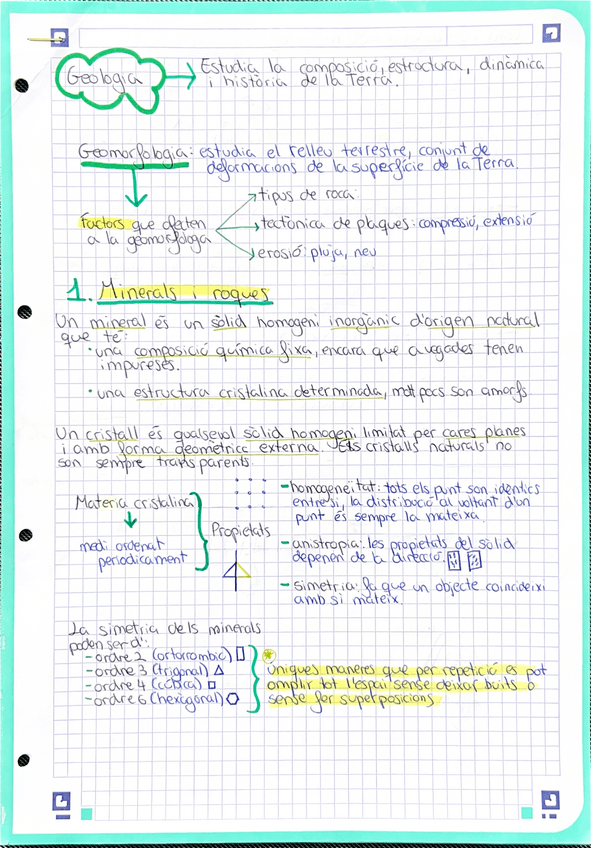 Geologia → Estudia la composició, estructura, dinàmica
i història de la Terra.
Geomorfologia: estudia el relleu terrestre, conjunt de
deformacions de la superfície de la Terra.
Factors que afecten
a la geomorfologa
→ tipus de roca:
→ tectònica de plaques: compressió, extensió
→ erosió: pluja, neu
1. Minerals i roques
Un mineral és un sòlid homogeni inorgànic d'origen natural
que té:
· una composició química fixa, encara que a vegades tenen
impureses.
· una estructura cristalina determinada, molt pocs son amorfs
Un cristall és qualsevol sòlid homogeni limitat per cares planes
i amb forma geomètrica externa. Els cristalls naturals no
son sempre transparents.
Materia cristalina
↓
medi ordenat
periodicament
Propietats
- homogeneïtat: tots els punt son idèntics
entre si, la distribució al voltant d'un
punt és sempre la mateixa.
- anistropia: les propietats del sòlid
depenen de la direcció.
- simetria: fa que un objecte coincideixi
amb si mateix.
La simetria dels minerals
poden ser d':
- ordre 2 (ortorrombic)
- ordre 3 (trigonal)
- ordre 4 (cúbica)
- ordre 6 (hexagonal)
* úniques maneres que per repetició es pot
omplir tot l'espai sense deixar buits o
sense fer superposicions